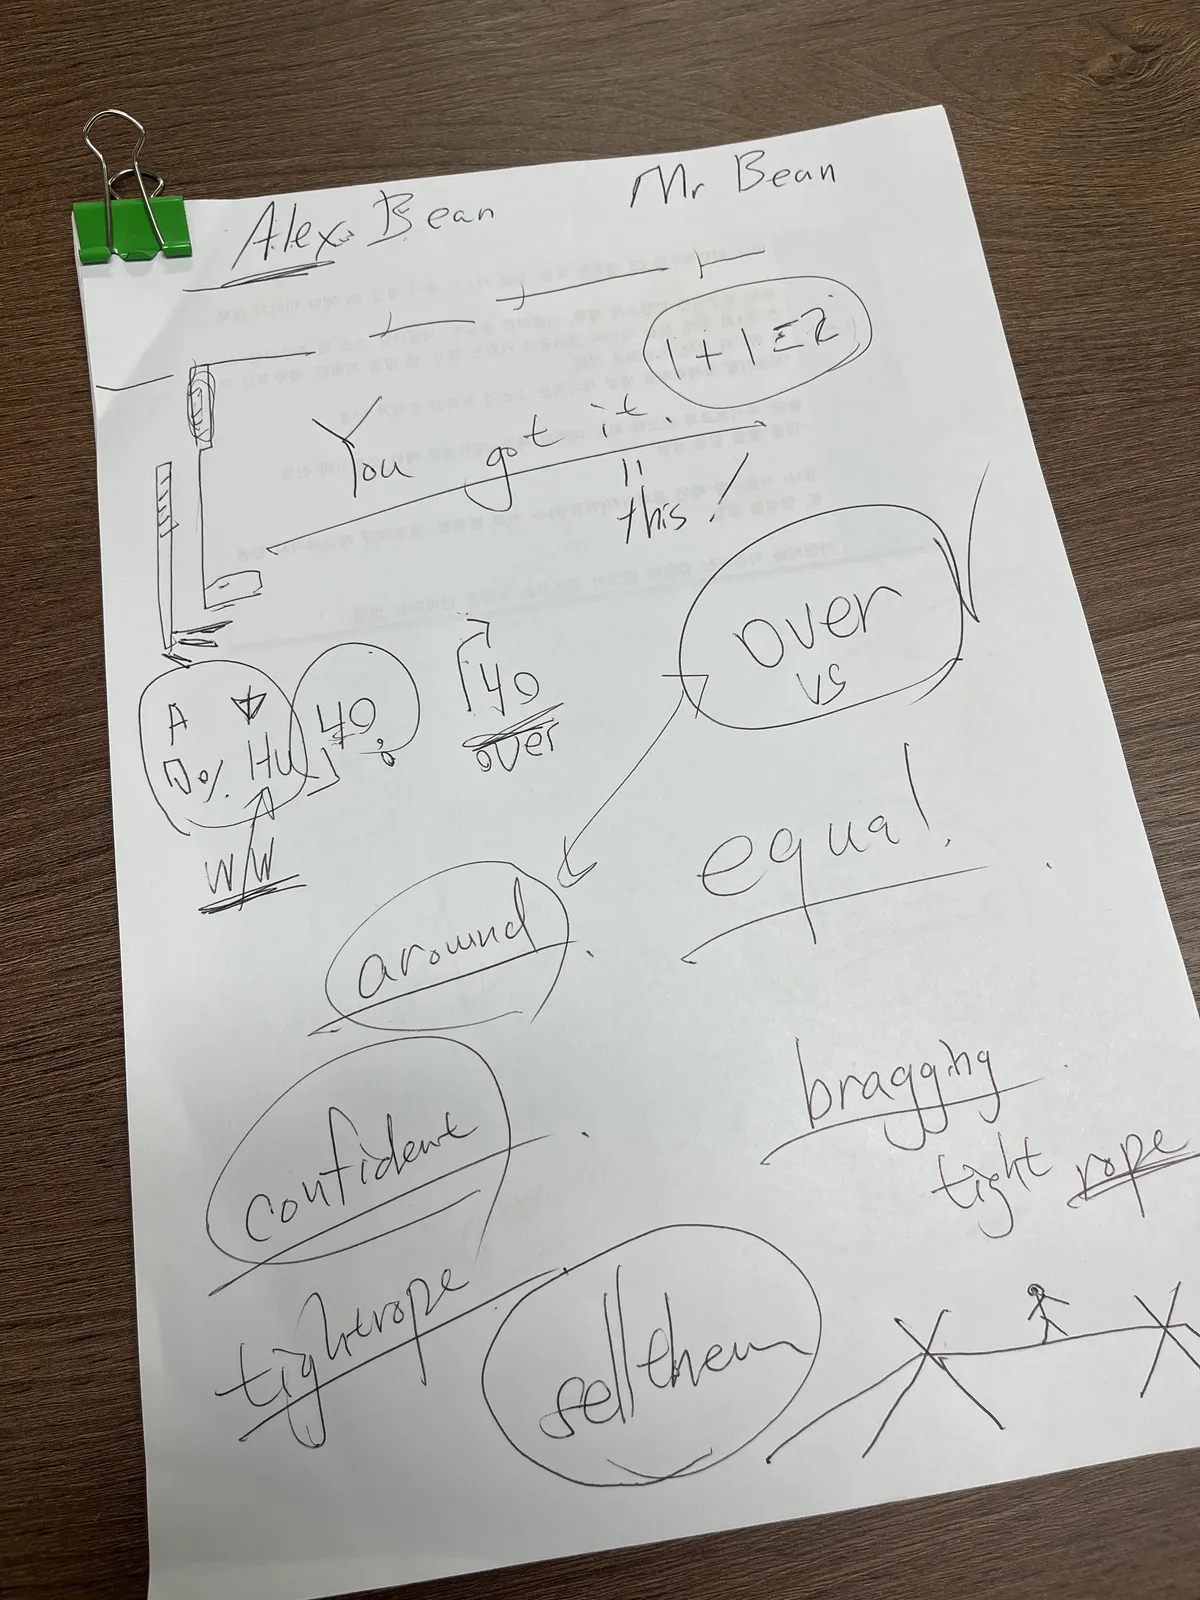 Alex Bean
Mr Bean
1+1=2
You got it.
" this!
over
vs
equal.
A
40
Hu
40
over
W/W
around
confident
bragging
tight rope
tightrope
sell them